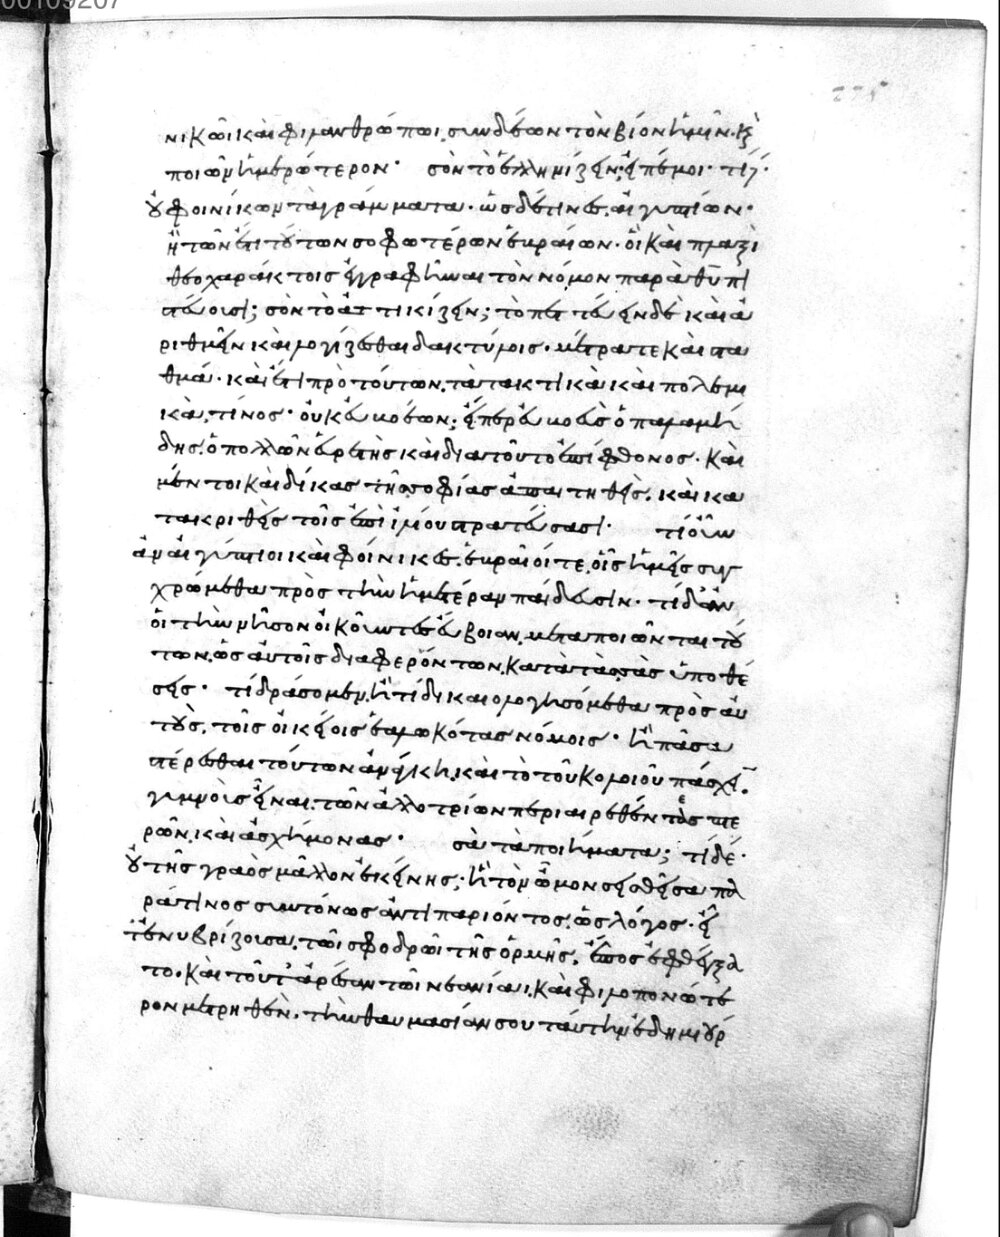 00109207
275
νικῶι καὶ φιλανθρώπωι, συνδέων τὸν βίον ἡμῖν· κỳ
ποιῶν ἡμερώτερον· σὸν τὸ ἑλληνίζειν; εἰπέ μοι· τί γ·
οὐ φοινίκων τὰ γράμματα· ὡς δέ τινες, αἰγυπτίων·
ἢ τῶν ἔτι τούτων σοφωτέρων ἑβραίων· οἳ καὶ πλαξὶ
θεοχαράκτοις ἐγγραφῆναι τὸν νόμον παρὰ θυ πι
στεύουσι; σὸν τὸ ἀττικίζειν; τὸ πεττεύειν δὲ καὶ ἀ
ριθμεῖν καὶ λογίζεσθαι δακτύλοις· μέτρα τε καὶ στα
θμά· καὶ ἔτι πρὸ τούτων, τὰ τακτικὰ καὶ πολεμι
κὰ, τίνος· οὐκ εὐβοέων; εἴπερ εὐβοεὺς ὁ παλαμή
δης, ὁ πολλῶν εὑρετὴς καὶ διὰ τοῦτο ἐπίφθονος· καὶ
μέν τοι καὶ δίκας τῆς σοφίας ἀπαιτηθεὶς, καὶ κα
τακριθεὶς τοῖς ἐπὶ ἴλιον στρατεύσασι· τί οὖν
ἂν αἰγύπτιοι καὶ φοίνικες, ἑβραῖοί τε, οἷς ἡμεῖς συγ
χρώμεθα πρὸς τὴν ἡμετέραν παίδευσιν· τί δ' ἂν
οἱ τὴν νῆσον οἰκοῦντες εὔβοιαν, μεταποιῶνται τού
των, ὡς αὐτοῖς διαφερόντων, κατὰ τὰς σὰς ὑποθέ
σεις· τί δράσομεν, ἢ τί δικαιολογησόμεθα πρὸς αὐ
τοὺς, τοῖς οἰκείοις ἑαλωκότας νόμοις· ἢ πᾶσα
στέρεσθαι τούτων ἀνάγκη, καὶ τὸ τοῦ κολοιοῦ πάσχειν·
γυμνοῖς εἶναι, τῶν ἀλλοτρίων περιαιρεθέντες πτε
ρῶν, καὶ ἀσχήμονας· σὰ τὰ ποιήματα; τί δέ·
οὐ τῆς γραὸς μᾶλλον ἐκείνης; ἣ τὸν ὦμον σεισθεῖσα πα
ρά τινος συντόνως ἀντιπαριόντος, ὡς λόγος· εἶ
τ' ἐνυβρίζουσα, τῶι σφοδρῶι τῆς ὁρμῆς, ἔπος ἐφθέγξα
το· καὶ τοῦτ' ἀρέσαν τῶι νεανίαι, καὶ φιλοπονώτε
ρον μετρηθὲν, τὴν θαυμασίαν σου ταύτην ἐδημιούρ